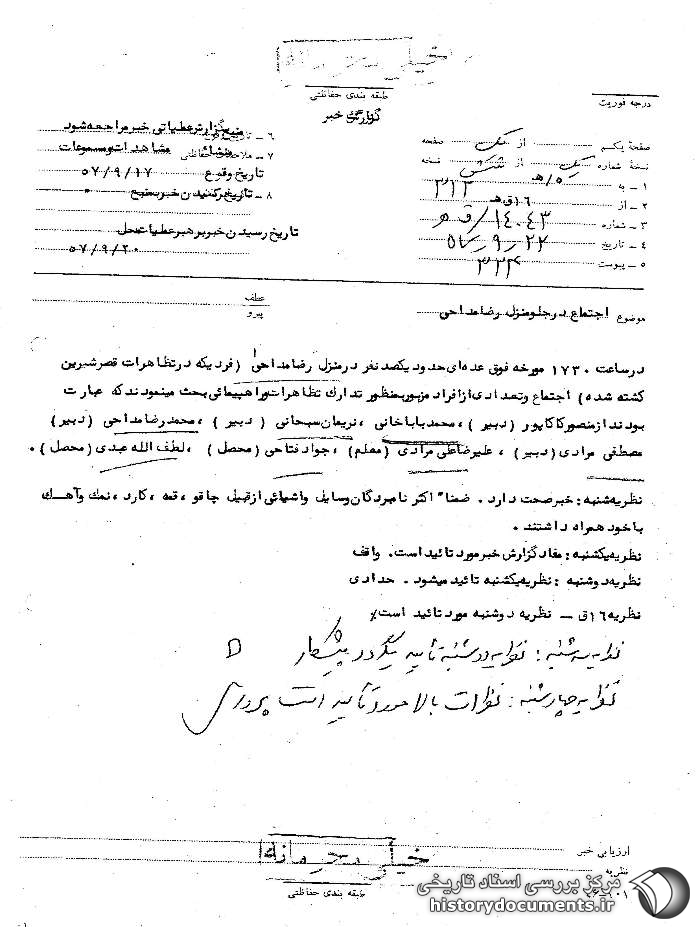 خیلی محرمانه
طبقه بندی حفاظتی
گزارش خبر
درجه فوریت
صفحه یکم از یک صفحه
نسخه شماره یک از شش نسخه
۱ – به ۵ / هـ ۳۱۲
۲ – از ۱۶ ق هـ
۳ – شماره ۱۴۰۴۳ / ق هـ
۴ – تاریخ ۲۲ ر ۹ ر ۵۷
۵ – پیوست ۳۳۴
۶ – بگزارش عملیاتی خبر مراجعه شود
۷ – ملاحظات حفاظتی
منشاء مشاهدات و مسموعات
تاریخ وقوع ۵۷/۹/۱۷
۸ – تاریخ رسیدن خبر بمنبع ۰
تاریخ رسیدن خبر برهبر عملیات محل
۵۷/۹/۲۰
موضوع اجتماع در جلو منزل رضا مداحی
عطف
پیرو
در ساعت ۱۷۳۰ مورخه فوق عده ای حدود یکصد نفر در منزل رضا مداحی ( فردیکه در تظاهرات قصرشیرین
کشته شده ) اجتماع و تعدادی از افراد مزبور بمنظور تدارک تظاهرات و راهپیمائی بحث مینمودند که عبارت
بودند از منصور کاکاپور ( دبیر ) ، محمد باباخانی ، نریمان سبحانی ( دبیر ) ، محمد رضا مداحی ( دبیر )
مصطفی مرادی ( دبیر ) ، علیرضا علی مرادی ( معلم ) ، جواد فتاحی ( محصل ) ، لطف الله عبدی ( محصل ) .
نظریه شنبه : خبر صحت دارد . ضمناً اکثر نامبردگان وسایل و اشیائی از قبیل چاقو ، قمه ، کارد ، نمک و آهک
با خود همراه داشتند .
نظریه یکشنبه : مفاد گزارش خبر مورد تائید است . واقف
نظریه دوشنبه : نظریه یکشنبه تائید میشود . حدادی
نظریه ۱۶ ق – نظریه دوشنبه مورد تائید است ٪
نظریه سه شنبه : نظریه دوشنبه تأیید میگردد پیشکار
نظریه چهارشنبه : نظرات بالا مورد تأیید است
ارزیابی خبر
نظریه
خیلی محرمانه
طبقه بندی حفاظتی
مرکز بررسی اسناد تاریخی
historydocuments.ir